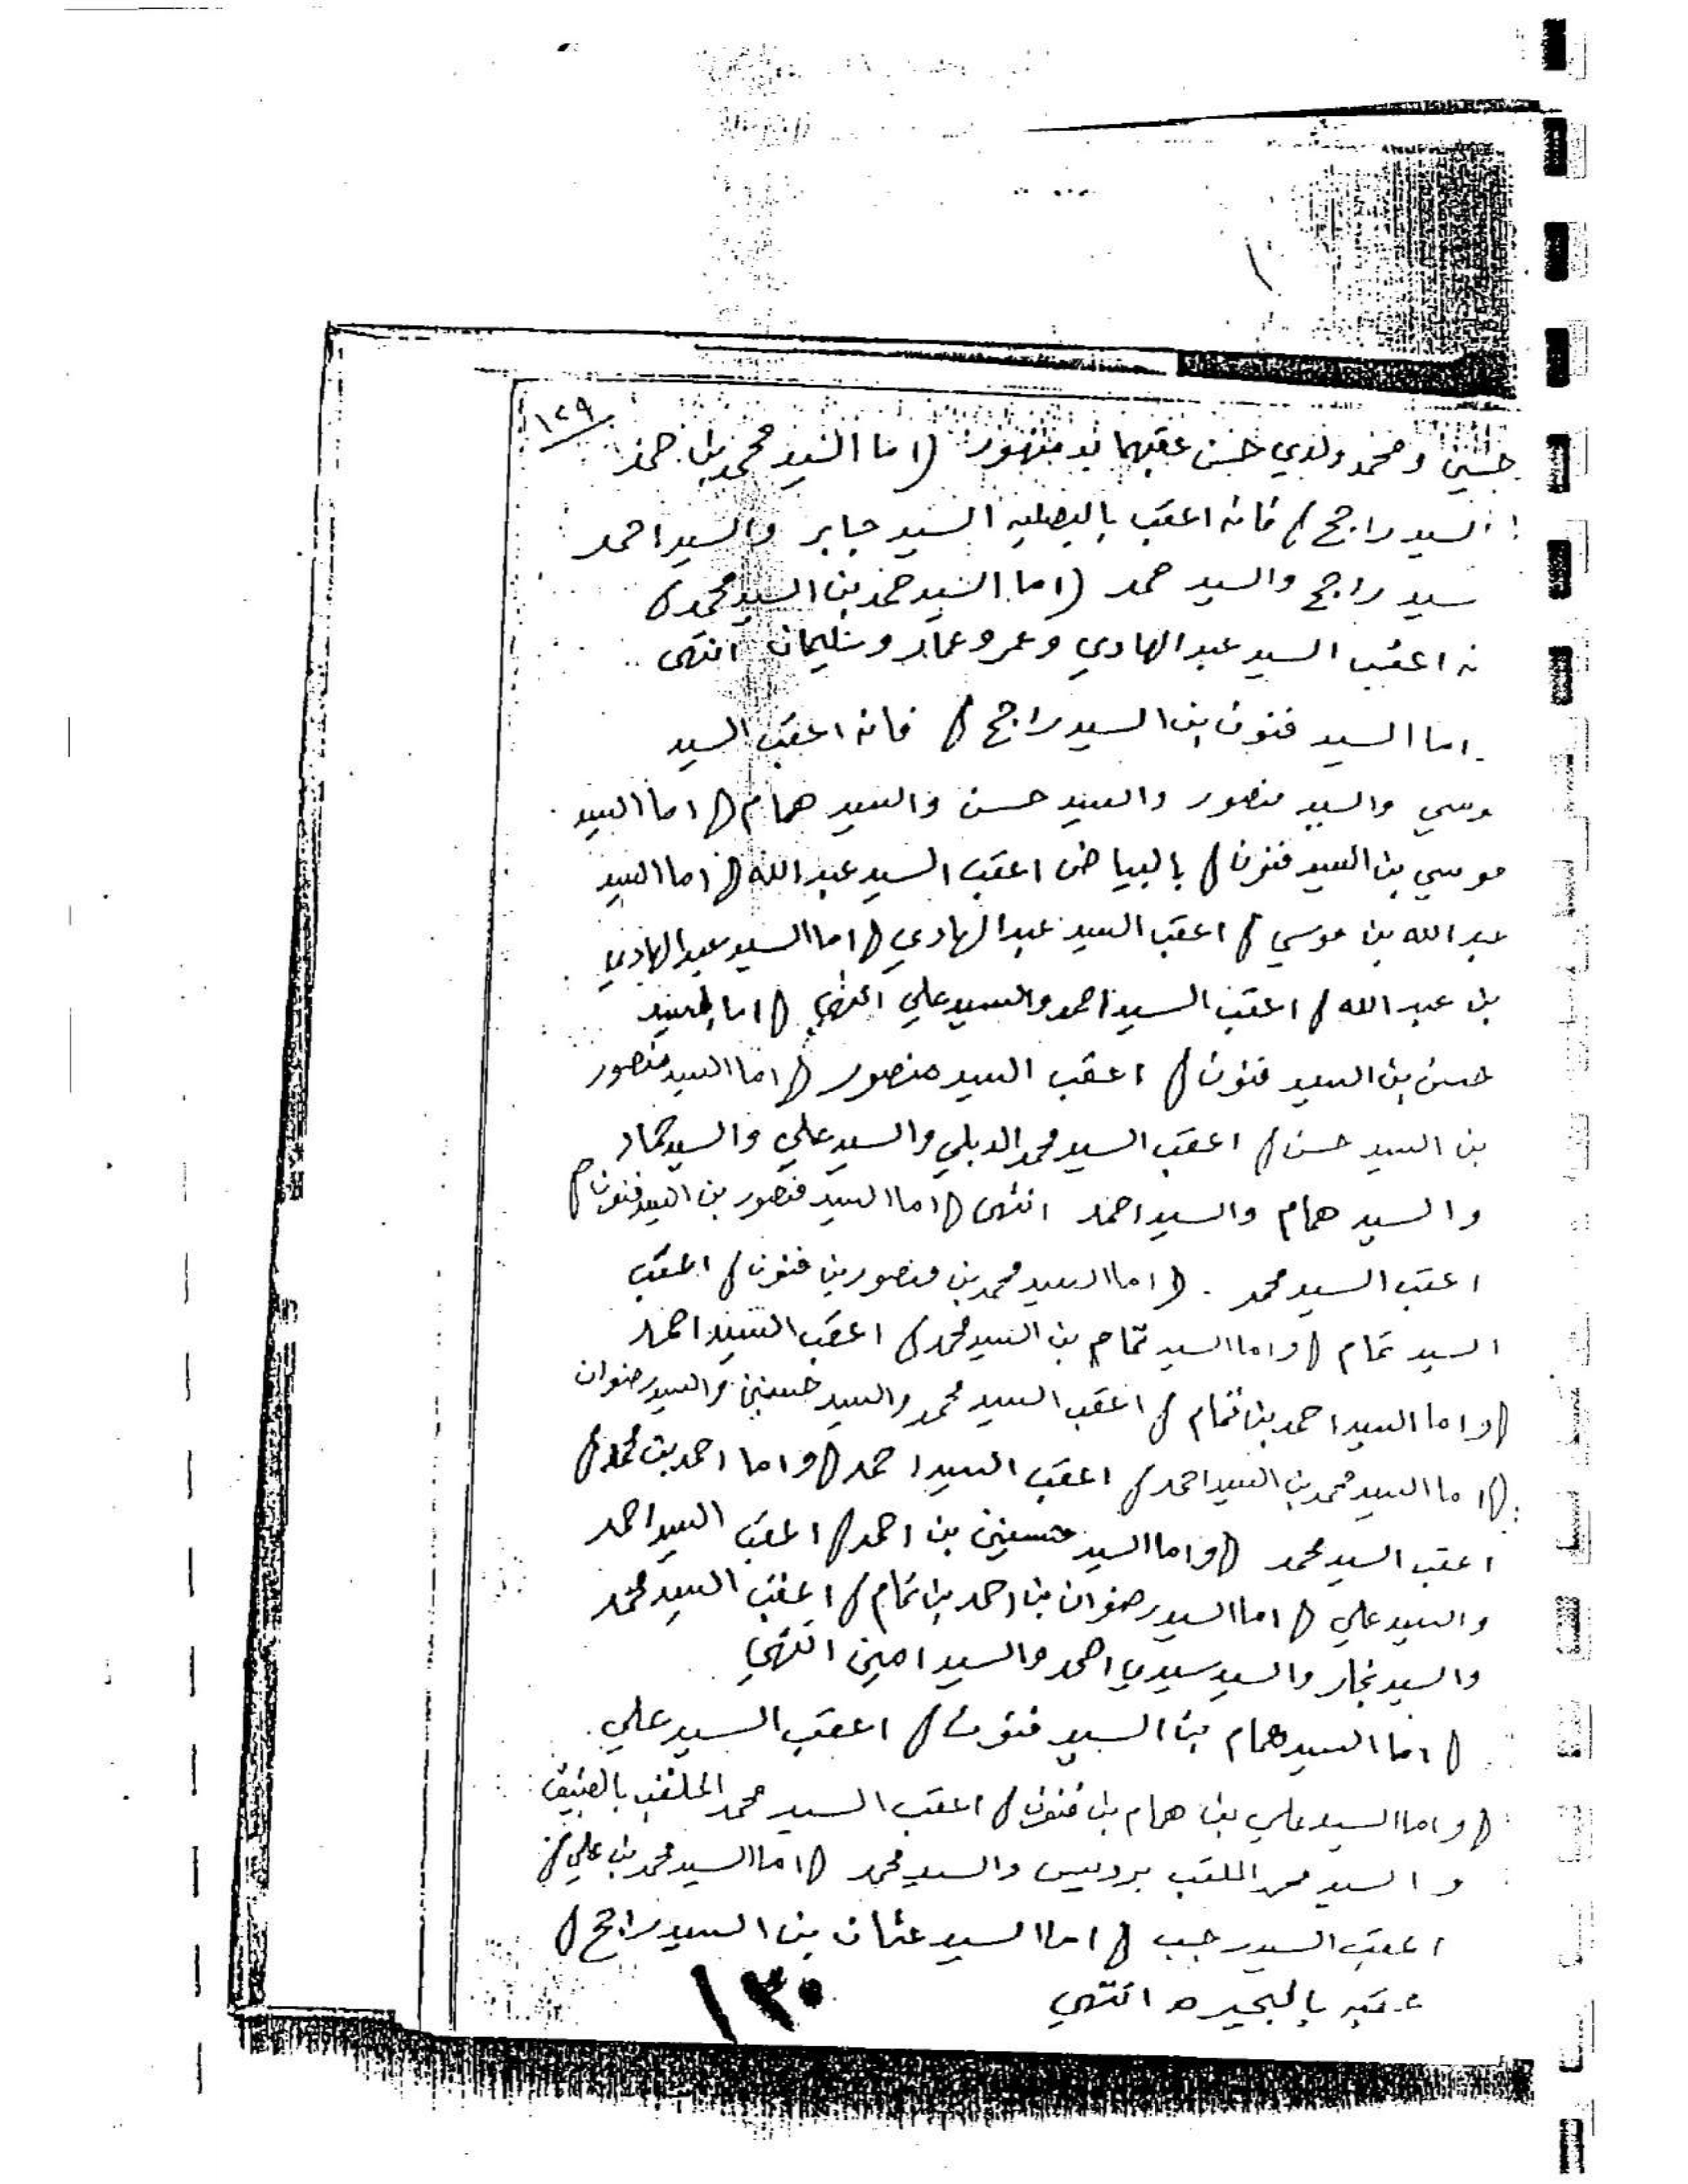 ١٢٩
حسين ومحمد ولدي حسن عقبهما بدمنهور (اما السيد محمد بن حمد
السيد راجح) فانه اعقب بالبصليه السيد جابر والسيد احمد
سيد راجح والسيد حمد (اما السيد حمد بن السيد محمد)
نه اعقب السيد عبد الهادي وعمر وعمار وسليمان انتهى
اما السيد فنون بن السيد راجح) فانه اعقب السيد
وسي والسيد منصور والسيد حسن والسيد همام (اما السيد
موسي بن السيد فنون) بالبياض اعقب السيد عبد الله (اما السيد
عبد الله بن موسي) اعقب السيد عبد الهادي (اما السيد عبد الهادي
بن عبد الله) اعقب السيد احمد والسيد علي انتهى (اما السيد
حسن بن السيد فنون) اعقب السيد منصور (اما السيد منصور
بن السيد حسن) اعقب السيد محمد الدبلي والسيد علي والسيد حماد
والسيد همام والسيد احمد انتهى (اما السيد منصور بن السيد فنون)
اعقب السيد محمد . (اما السيد محمد بن منصور بن فنون) اعقب
السيد تمام (واما السيد تمام بن السيد محمد) اعقب السيد احمد
(واما السيد احمد بن تمام) اعقب السيد محمد والسيد حسنين والسيد رضوان
(اما السيد محمد بن السيد احمد) اعقب السيد احمد (واما احمد بن محمد)
اعقب السيد محمد (واما السيد حسنين بن احمد) اعقب السيد احمد
والسيد علي (اما السيد رضوان بن احمد بن تمام) اعقب السيد محمد
والسيد نجار والسيد سيدي احمد والسيد امين انتهي
(اما السيد همام بن السيد فنون) اعقب السيد علي
(واما السيد علي بن همام بن فنون) اعقب السيد محمد الملقب
والسيد محمد الملقب بردبيس والسيد محمد (اما السيد محمد بن علي)
اعقب السيد رجب (اما السيد عثمان بن السيد راجح)
عقبه بالبحيره انتهي
١٣٠